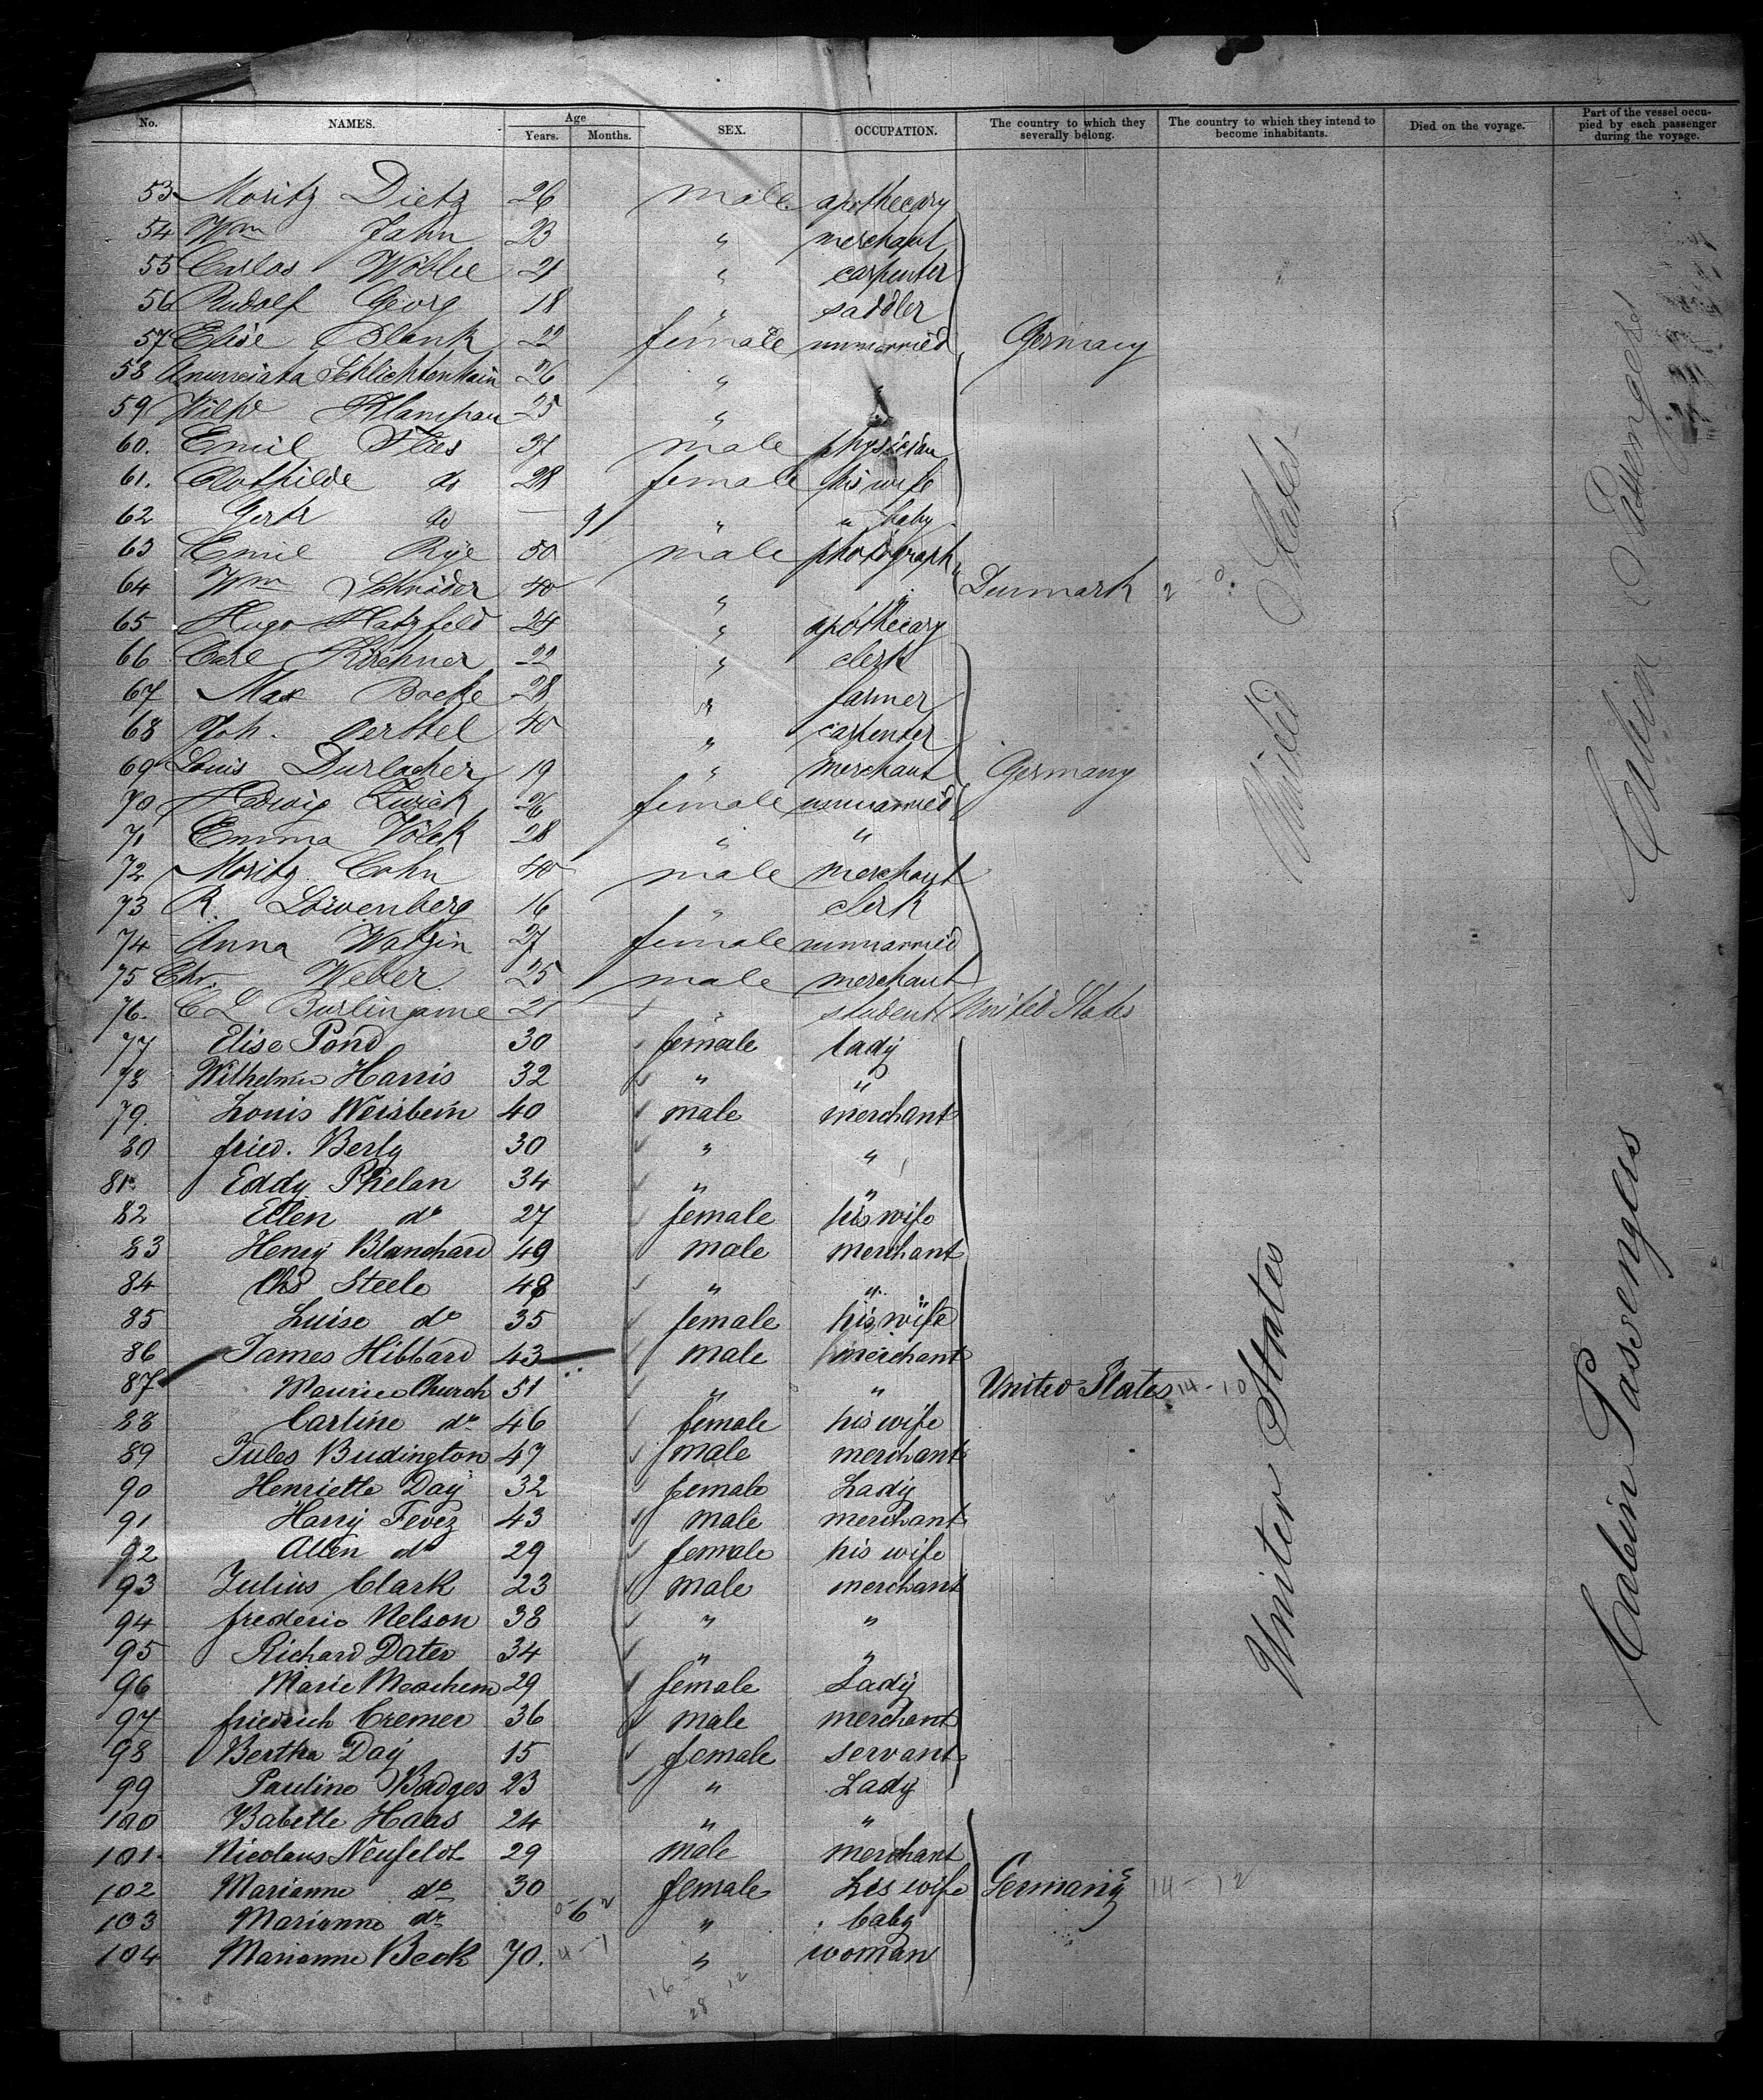 No. NAMES. Age Years. Months. SEX. OCCUPATION. The country to which they severally belong. The country to which they intend to become inhabitants. Died on the voyage. Part of the vessel occupied by each passenger during the voyage.
53 Moritz Dietz 26 male apothecary
54 Wm Jahn 23 " merchant
55 Carlos Wöblie 21 " carpenter
56 Rudolf Georg 18 " saddler
57 Elise Blank 22 female unmarried Germany
58 Anunciata Schlichtenhain 26 " "
59 25 " "
60. Emil 37 male physician
61. Clothilde do 28 female his wife
62 Gertr do — 9 " " baby
63 Emil Rye 50 male photograph
64 Wm Schröder 40 " " Denmark 2
65 Hugo Hatzfeld 24 " apothecary
66 Carl Kirchner 22 " clerk
67 Max Bocke 28 " farmer
68 Joh. Oerttel 40 " carpenter
69 Louis Durlacher 19 " merchant Germany
70 Hedwig Zwick 26 female unmarried
71 Emma Völck 28 " "
72 Moritz Cohn 40 male merchant
73 R. Löwenberg 16 " clerk
74 Anna Watjin 27 female unmarried
75 Chr. Weber 25 male merchant
76. C L Burlingame 21 " student United States
United States
Cabin Passengers
77 Elise Pond 30 female lady
78 Wilhelmin Harris 32 " "
79. Louis Weisbein 40 male merchant
80 fried. Berly 30 " "
81. Eddy Phelan 34 " "
82 Ellen do 27 female his wife
83 Henry Blanchard 49 male merchant
84 Chs Steele 48 " "
85 Luise do 35 female his wife
86 James Hibbard 43 male merchant
87 Maurice Church 51 " " United States 14-10
88 Carline do 46 female his wife
89 Jules Budington 47 male merchant
90 Henriette Day 32 female Lady
91 Harry Fevez 43 male merchant
92 Allen do 29 female his wife
93 Julius Clark 23 male merchant
94 frederic Nelson 38 " "
95 Richard Dater 34 " "
96 Marie Meachem 29 female Lady
97 friedrich Cremer 36 male merchant
98 Bertha Day 15 female servant
99 Pauline Badges 23 " Lady
100 Babette Haas 24 " "
101. Nicolaus Neufeldt 29 male merchant
102 Marianne do 30 female his wife Germany 14-12
103 Marianne do 6 " baby
104 Marianne Beck 70. " woman
United States
Cabin Passengers
16 12
28